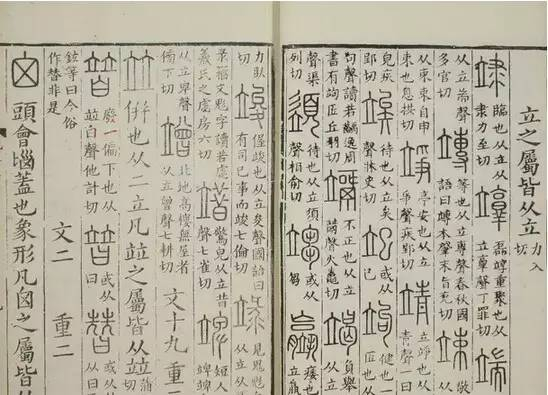 立之屬皆从立 力入切
𥩷 臨也从立从隶力至切 𥪼 磊𥪼重聚也从立𦎧聲丁罪切 端
从立耑聲多官切 竱 等也从立專聲春秋國語曰竱本肇末旨兗切 竦 敬也
从立从束束自申束也息拱切 竫 亭安也从立爭聲疾郢切 靖 立竫也从立青聲
皃疾郢切 竢 待也从立矣聲牀史切 𥩸 或从巳 竘 健也一曰匠也从立
句聲讀若齲逸周書有竘匠丘羽切 不正也从立聲火鼃切 竭 負舉也从立
聲渠列切 待也从立須聲相俞切 或从芻聲 痿也从立
力臥切 竣 偓竣也从立夋聲國語曰有司已事而竣七倫切 見鬼鬽皃从立从
录籀文鬽字讀若虙羲氏之虙房六切 䇎 驚皃从立昔聲七雀切 䇑 短人立䇑䇑
从立卑聲傍下切 竲 北地高樓無屋者从立曾聲七耕切 文十九 重二
竝 併也从二立凡竝之屬皆从竝 蒲
暜 廢一偏下也从竝白聲他計切 或从曰 或从兟从曰
鉉等曰今俗作替非是 文二 重二
囟 頭會匘蓋也象形凡囟之屬皆从